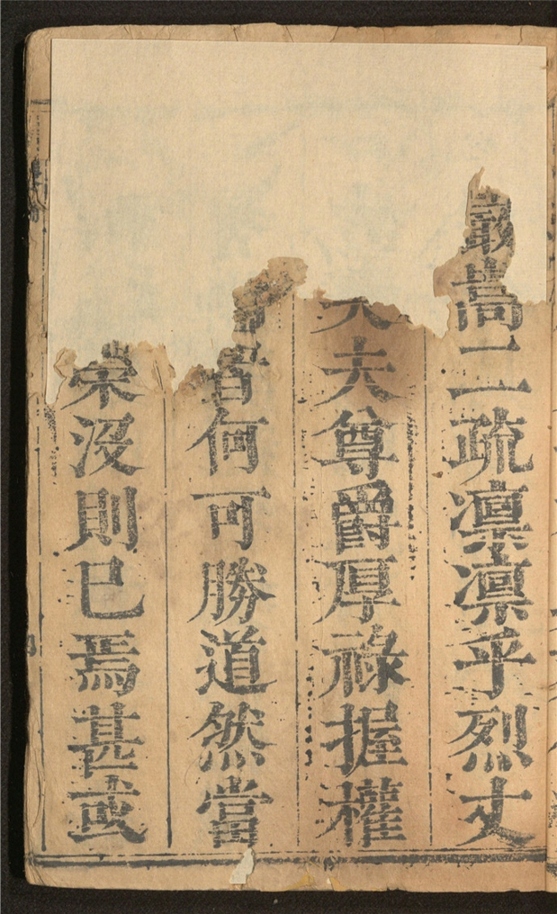 二疏凜凜乎烈丈
夫尊爵厚祿握權
者何可勝道然當
榮沒則已焉甚或